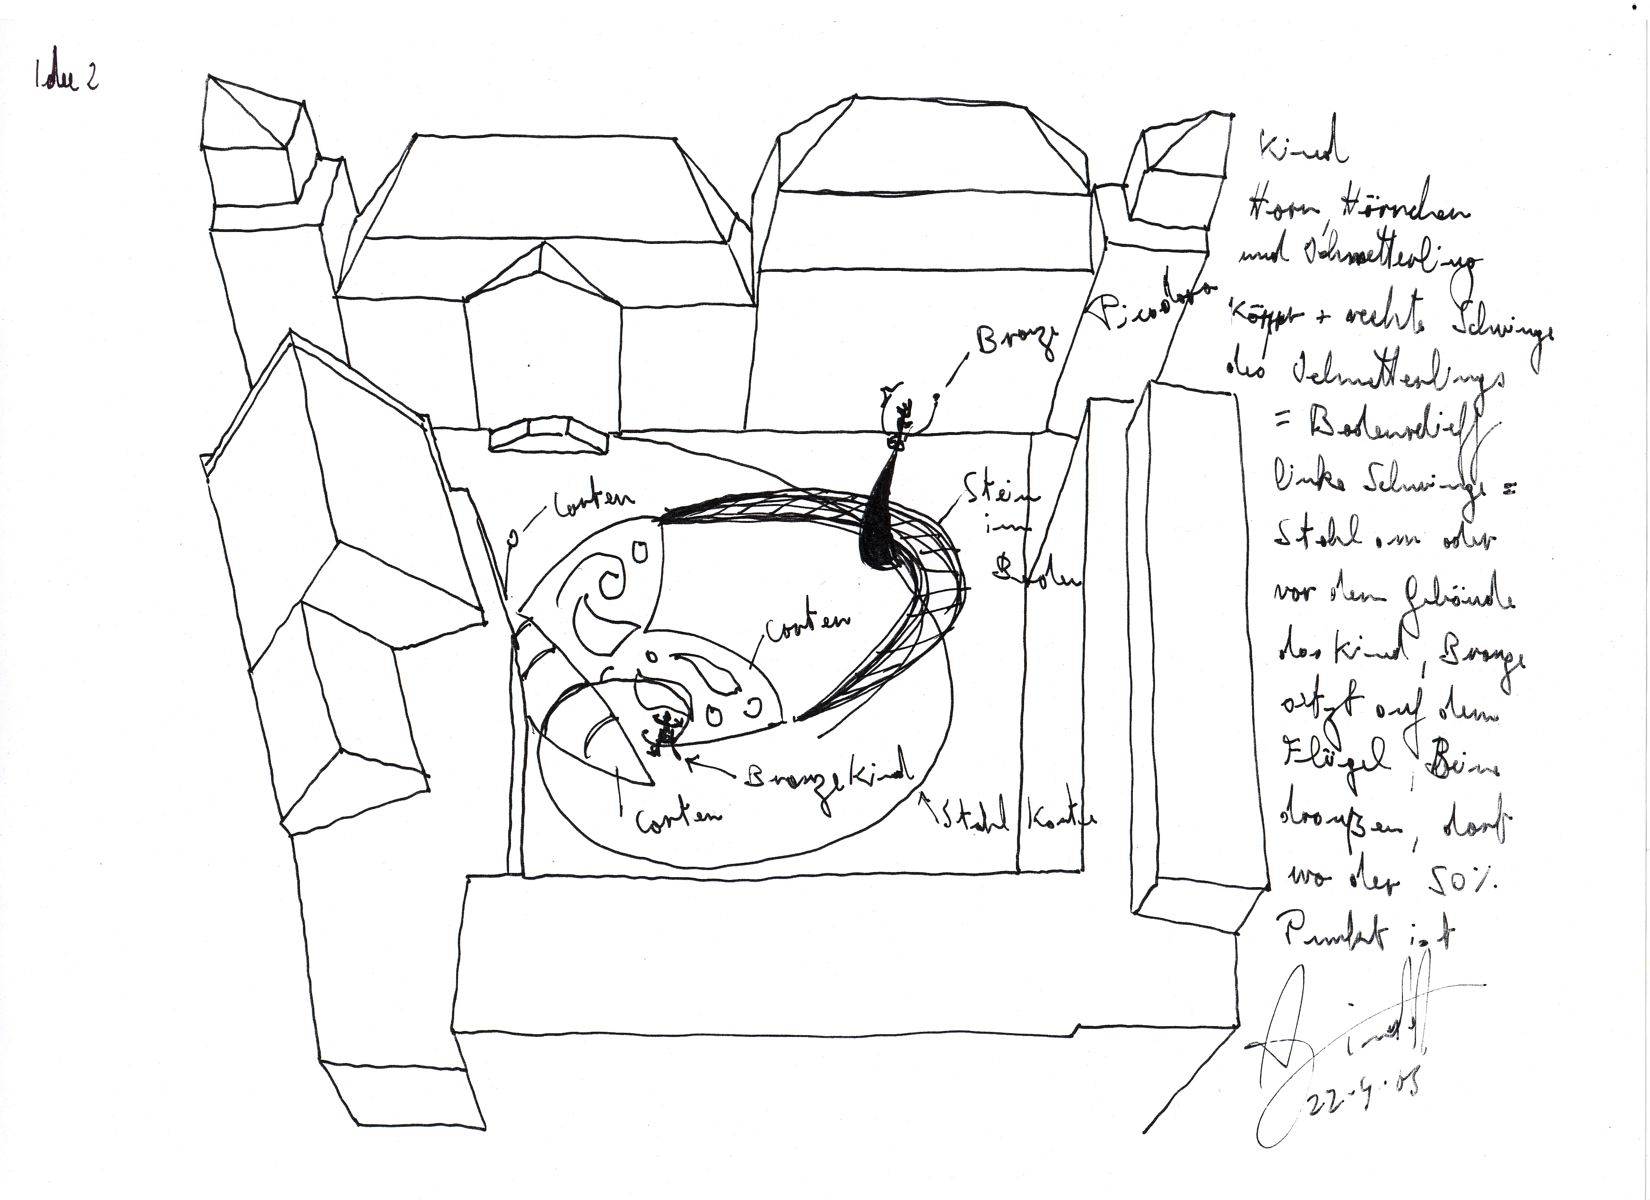 Idee 2
Kind
Horn, Hörnchen
und Schmetterling
Picodoro
Körper + rechte Schwinge
des Schmetterlings
= Bodenrelieff
linke Schwinge =
Stahl am oder
vor dem Gebäude
das Kind, Bronze
sitzt auf dem
Flügel, Beine
draußen, dort
wo der 50%
Punkt ist
22.4.03
Bronze
Stein
im
Boden
Corten
Corten
Bronze Kind
Corten
Stahl Kante